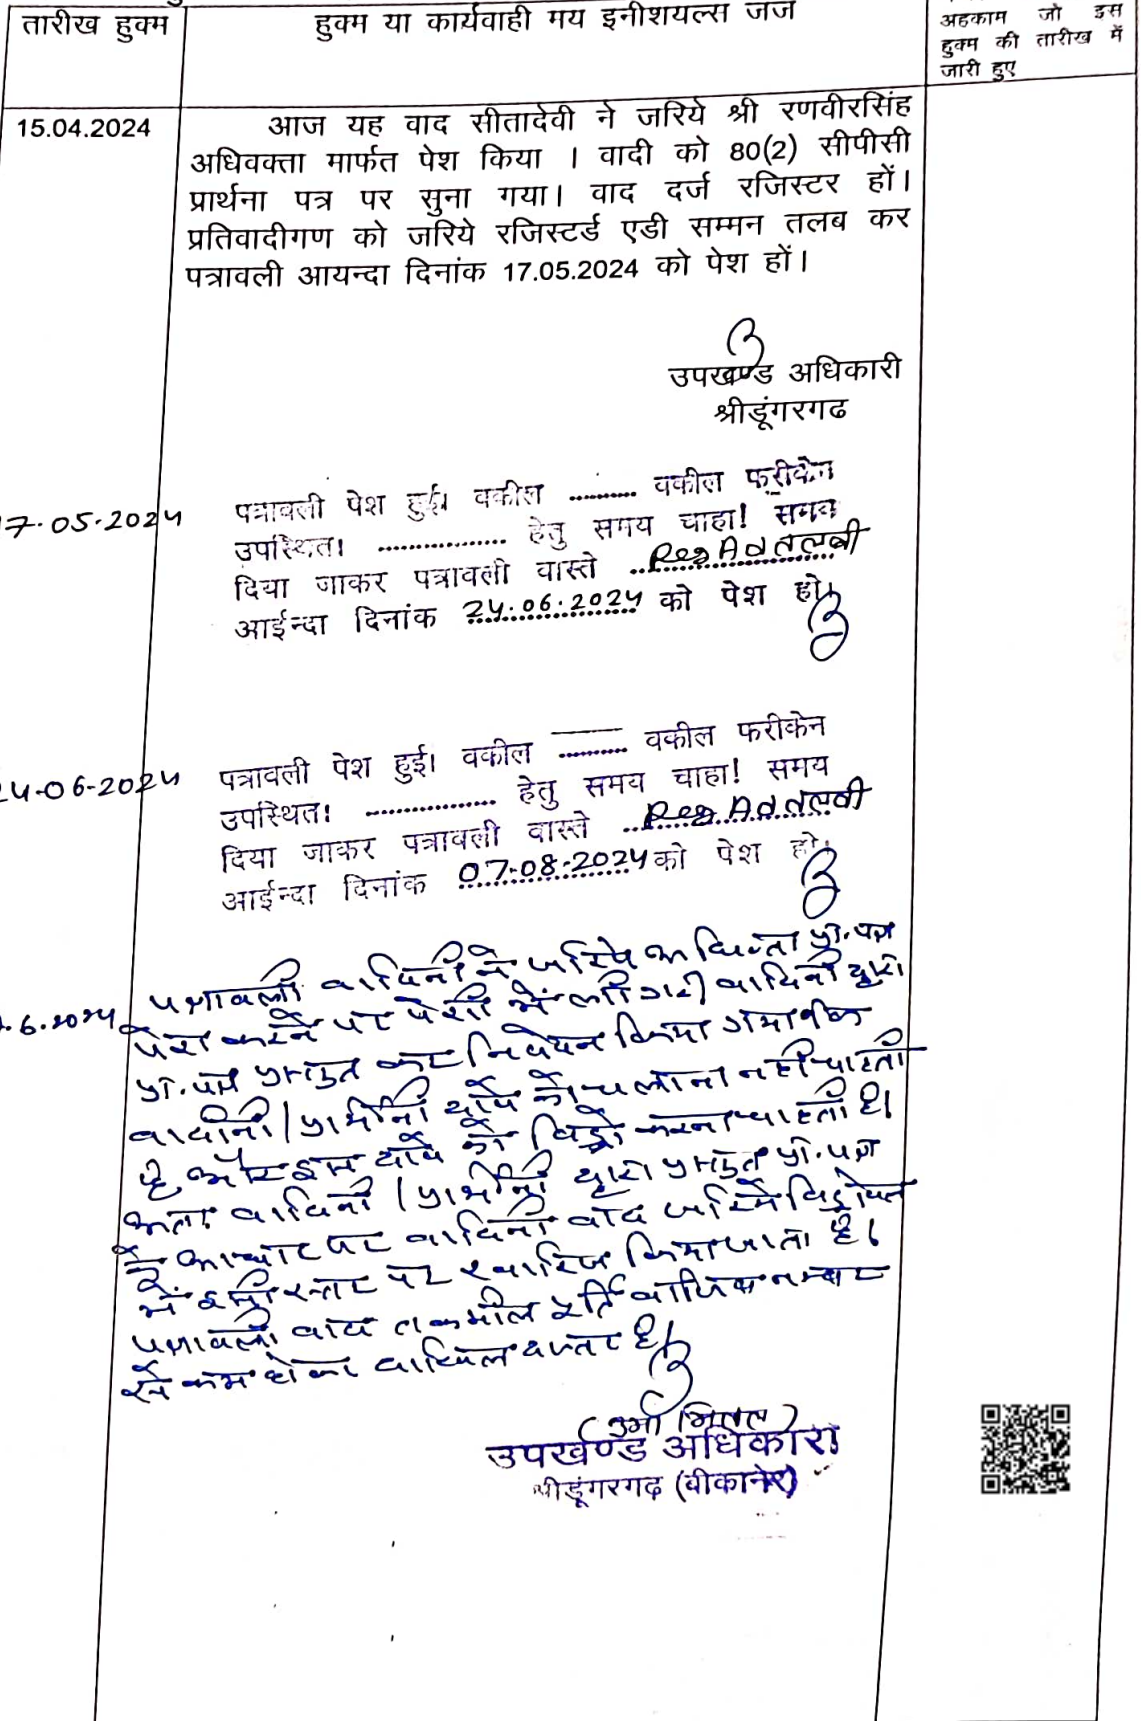 तारीख हुक्म
हुक्म या कार्यवाही मय इनीशयल्स जज
अहकाम जो इस
हुक्म की तारीख में
जारी हुए
15.04.2024
आज यह वाद सीतादेवी ने जरिये श्री रणवीरसिंह
अधिवक्ता मार्फत पेश किया । वादी को 80(2) सीपीसी
प्रार्थना पत्र पर सुना गया। वाद दर्ज रजिस्टर हों।
प्रतिवादीगण को जरिये रजिस्टर्ड एडी सम्मन तलब कर
पत्रावली आयन्दा दिनांक 17.05.2024 को पेश हों।
उपखण्ड अधिकारी
श्रीडूंगरगढ
7.05.2024
पत्रावली पेश हुई। वकील ........... वकील फरीकेन
उपस्थित। ................. हेतु समय चाहा! समय
दिया जाकर पत्रावली वास्ते Reg AD तलबी
आईन्दा दिनांक 24.06.2024 को पेश हो।
24-06-2024
पत्रावली पेश हुई। वकील ........... वकील फरीकेन
उपस्थित। ................. हेतु समय चाहा! समय
दिया जाकर पत्रावली वास्ते Reg AD तलबी
आईन्दा दिनांक 07-08-2024 को पेश हो।
.6.2024
पत्रावली वादिनी ने जरिये अधिवक्ता प्रा. पत्र
पेश करने पर पेशी में ली गयी वादिनी द्वारा
प्रा. पत्र प्रस्तुत कर निवेदन किया गया कि
वादीनी/प्रार्थीनी दावे को चलाना नही चाहती
है और इस दावे को विड्रो करना चाहती है।
अतः वादिनी/प्रार्थीनी द्वारा प्रस्तुत प्रा. पत्र
के आधार पर वादिनी वाद जरिये विड्रोवल
में इसी स्तर पर खारिज किया जाता है।
पत्रावली बाद तकमील पूर्ति वाजिब नम्बर
से कम होकर दाखिल दफ्तर हो।
(उमा मित्तल)
उपखण्ड अधिकारी
श्रीडूंगरगढ़ (बीकानेर)